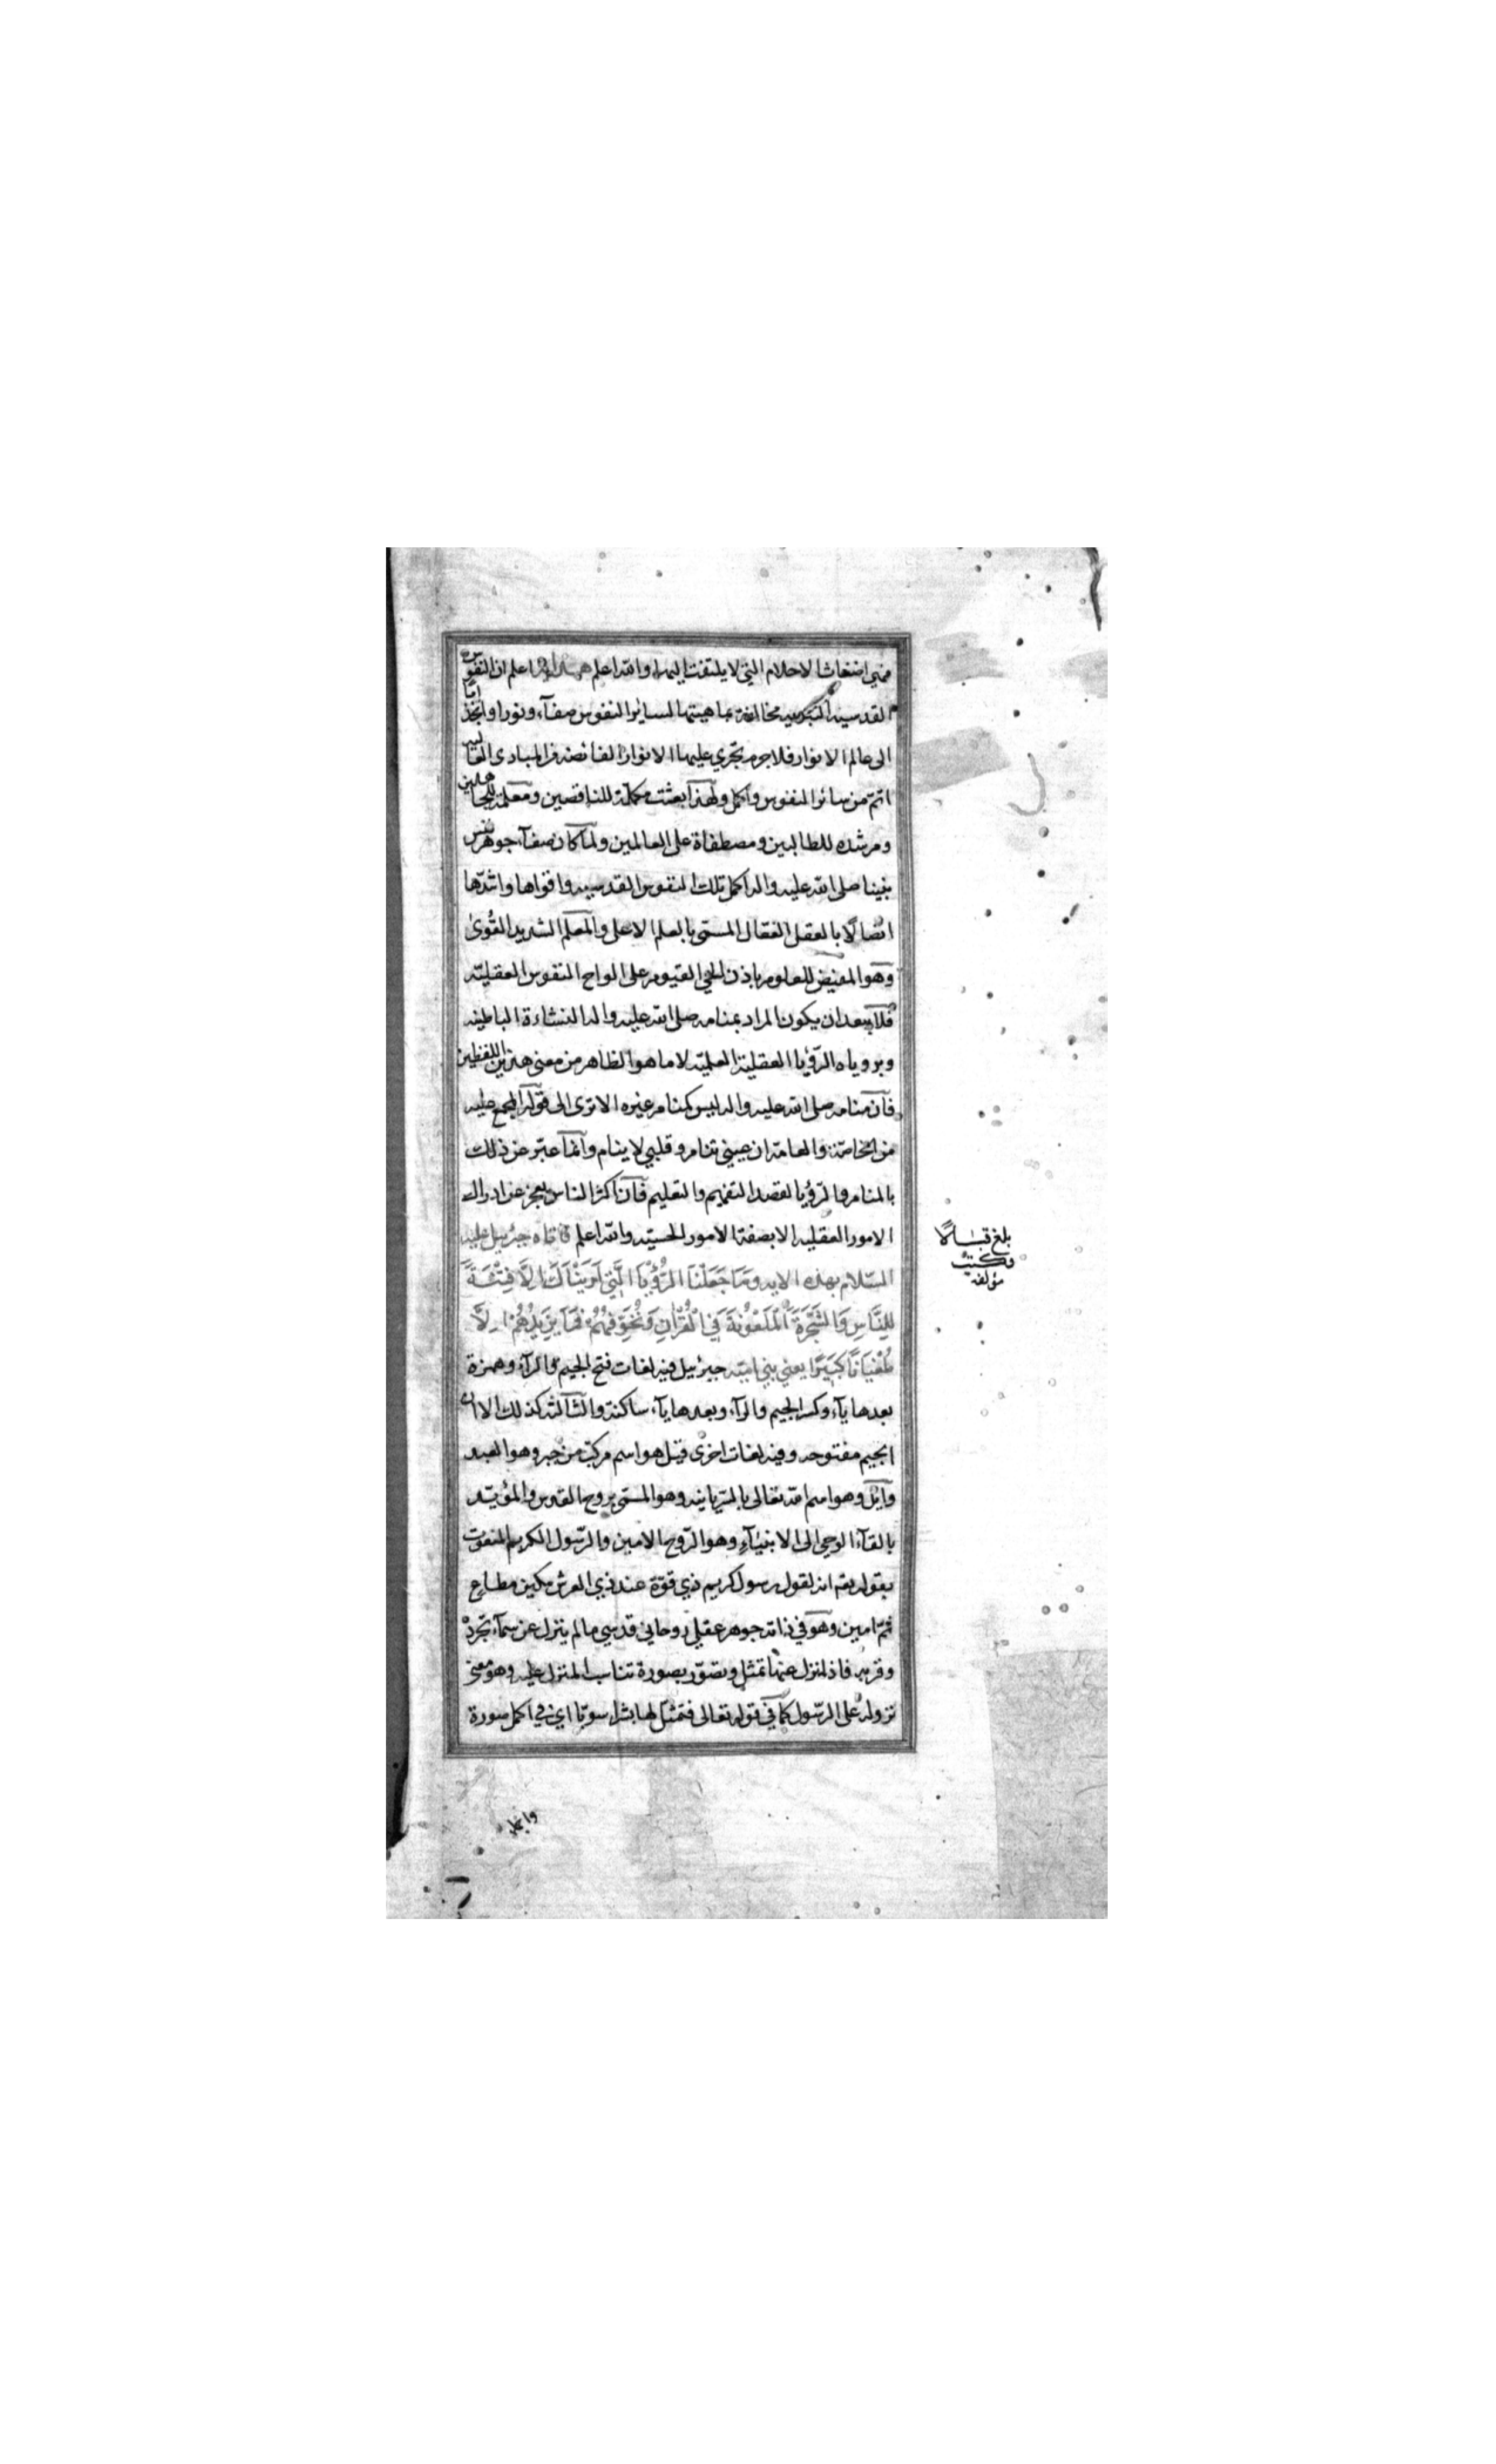 فهي اضغاث الاحلام التي لا يلتفت اليها والله اعلم اعلم ان النفوس
القدسية مخالفة بماهيتها لسائر النفوس صفآء ونورا وانجذابا
الى عالم الانوار فلا جرم تجري عليها الانوار الفائضة من المبادى العالية
اتم من سائر النفوس واكمل ولهذا بعثت مكملة للناقصين ومعلمة للجاهلين
ومرشده للطالبين ومصطفاة على العالمين ولما كان صفآء جوهر نفس
نبينا صلى الله عليه واله اكمل تلك النفوس القدسيه واقواها واشدها
اتصالا بالعقل الفعّال المسمّى بالعلم الاعلى والمعلم الشديد القُوىٰ
وهو المفيض للعلوم باذن الحي القيوم على الواح النفوس العقليّه
فلا يبعد ان يكون المراد بمنامه صلى الله عليه واله النشاءة الباطنيه
وبروياه الرّؤيا العقلية العلميّه لا ما هو الظاهر من معنى هذين اللفظين
فان منامه صلى الله عليه واله ليس كمنام غيره الا ترى الى قوله المجمع عليه
من الخاصّة والعامّه ان عيني تنام وقلبي لا ينام وانما عبّر عن ذلك
بالمنام والرّؤيا لقصد التفهيم والتعليم فان اكثر الناس يعجز عن ادراك
الامور العقليه الا بصفة الامور الحسيّه والله اعلم فاتاه جبرئيل عليه
السّلام بهذه الايه وَمَا جَعَلْنَا الرُّؤْيَا الَّتِي اَرَيْنَاكَ اِلَّا فِتْنَةً
لِلنَّاسِ وَالشَّجَرَةَ الْمَلْعُونَةَ فِي الْقُرْاٰنِ وَنُخَوِّفُهُمْ فَمَا يَزِيدُهُمْ اِلَّا
طُغْيَانًا كَبِيرًا يعني بني اميّه جبرئيل فيه لغات فتح الجيم والرآء وهمزة
بعدها يآء وكسر الجيم والرآء وبعدها يآء ساكنة والثالثة كذلك الا ان
الجيم مفتوحه وفيه لغات اخرى قيل هو اسم مركب من جبر وهو العبد
وايل وهو اسم الله تعالى بالسّريانيه وهو المسمّى بروح القدس والمؤيّد
بالقآء الوحي الى الانبيآءِ وهو الرّوح الامين والرّسول الكريم المنعوت
بقوله تعم انه لقول رسول كريم ذي قوّة عند ذي العرش مكين مطاع
ثمّ امين وهو في ذاته جوهر عقلي روحاني قدسي ما لم يتنزل عن سمآء تجرّده
وقربه فاذا تنزل عنها تمثل وتصوّر بصورة تناسب المتنزل عليه وهو معنى
نزوله على الرّسول كما في قوله تعالى فتمثّل لها بشرا سويّا اي في اكمل صورة
بلغ قبالًا
وكتب
مؤلفه
وابها